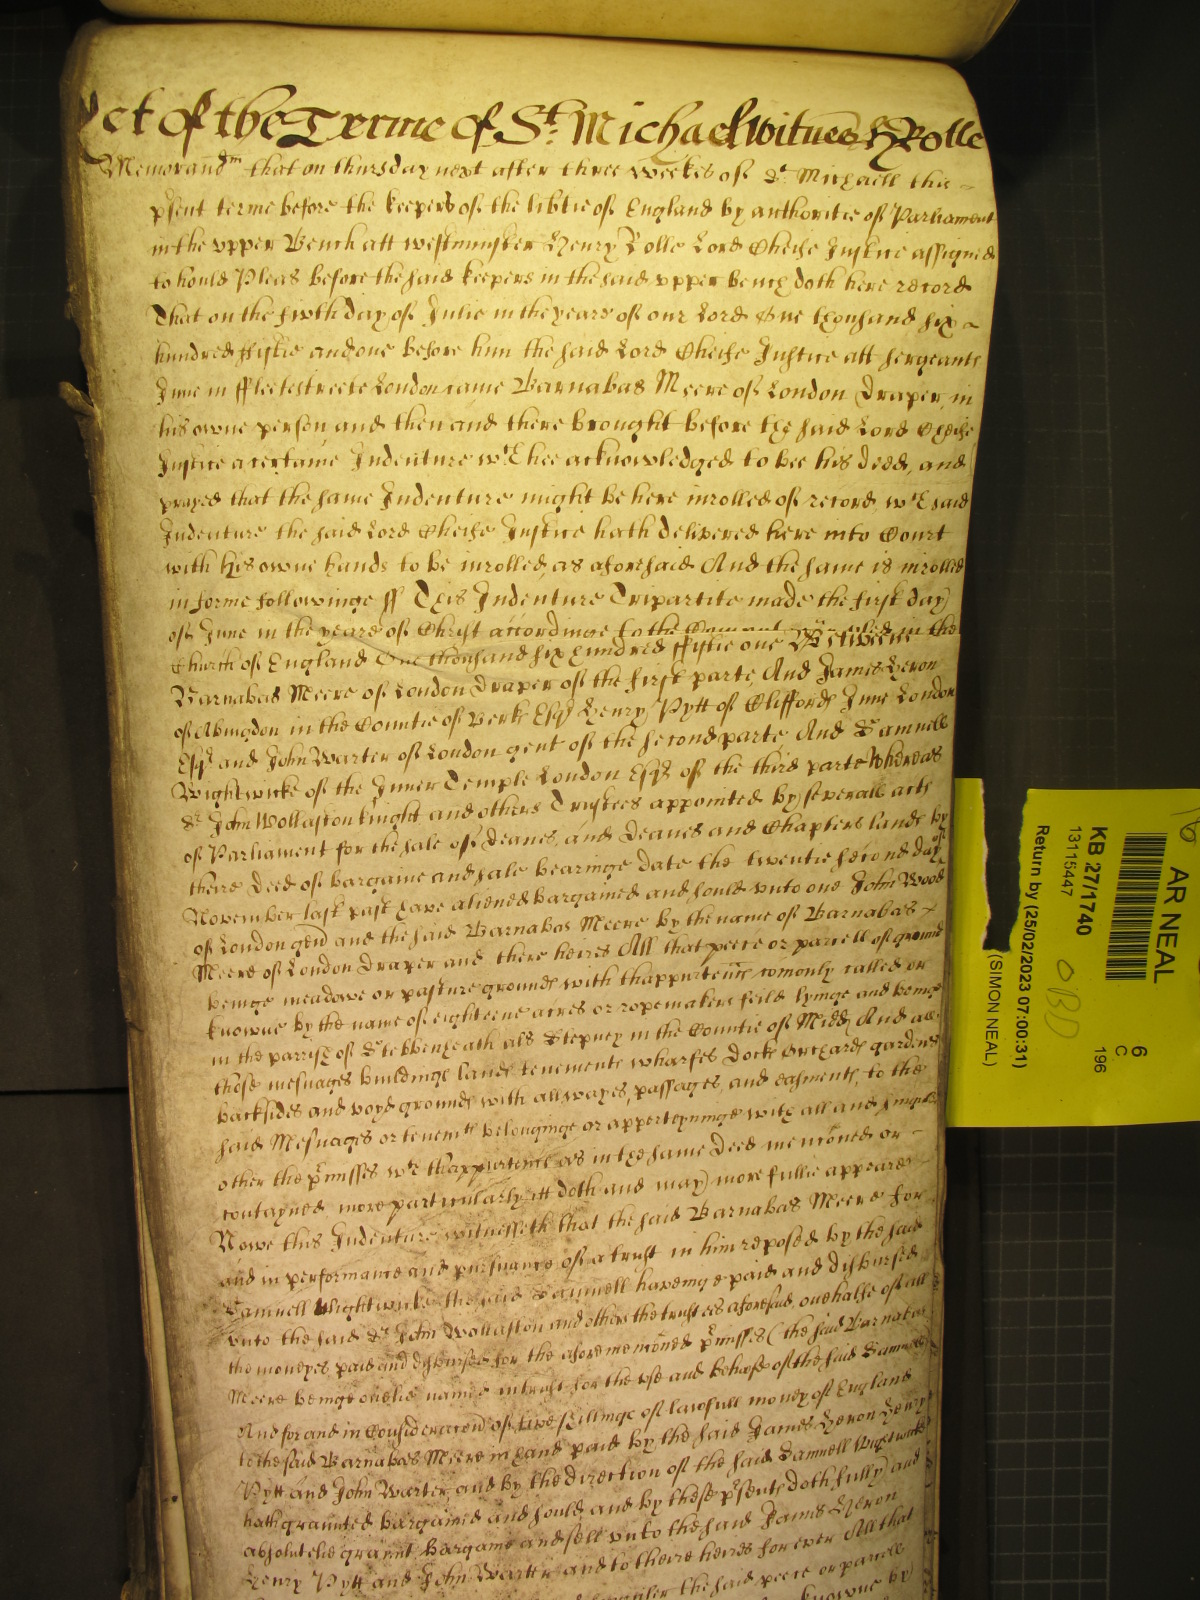 yet of the Terme of St. Michael witnes H Rolle
Memorand^m that on thursday next after three weekes of St. Michaell this
p'sent terme before the keepers of the lib'tie of England by authoritie of Parliament
in the upper Bench att westminster Henry Rolle Lord Cheife Justice assigned
to hould Pleas before the said keepers in the said upper bench doth here record
That on the fivth day of Julie in the yeare of our Lord One thousand six
hundred ffiftie and one before him the said Lord Cheife Justice att Sergeants
Inne in ffleetestreete London came Barnabas Meere of London Draper in
his owne person and then and there brought before the said Lord Cheife
Justice a certaine Indenture w^ch hee acknowledged to bee his deed, and
prayed that the same Indenture might be here inrolled of record, w^ch said
Indenture the said Lord Cheife Justice hath delivered here into Court
with his owne hands to be inrolled, as aforesaid And the same is inrolled
in forme followinge ss This Indenture Tripartite made the first day
of June in the yeare of Christ accordinge to the used in the
Church of England One thousand six hundred ffiftie one Betweene
Barnabas Meere of London Draper of the first parte, And James Heron
of Abingdon in the Countie of Berks Esq^r Henry Pytt of Cliffords Inne London
Esq^r and John Warter of London gent of the second parte And Samuell
Wightwicke of the Inner Temple London Esq^r of the third parte Whereas
S^r John Wollaston knight and others Trustees appointed by severall acts
of Parliament for the sale of Deanes, and Deanes and Chapters lands by
there Deed of bargaine and sale bearinge date the twentie second day of
November last past have aliened bargained and sould unto one John Wood
of London gent and the said Barnabas Meere by the name of Barnabas
Meere of London Draper and there heires All that peece or parcell of ground
beinge meadowe or pasture grounds with thappurten'ncs comonly called or
knowne by the name of eighteene acres or ropemakers feild lyinge and beinge
in the parrish of Stebbenheath al's Stepney in the Countie of Midd, And all
those mesuages buildings lands tenements wharfes Docks Orchards gardens
backsides and voyd grounds with all wayes, passages, and easments, to the
said Mesuages or tenem^ts belonginge or apperteyninge with all and singuler
other the p'misses w^th thappurtenncs as in the same Deed mencioned or
contayned more particularly itt doth and may more fullie appeare
Nowe this Indenture witnesseth that the said Barnabas Meere for
and in performance and pursuance of a trust in him reposed by the said
Samuell Wightwicke the said Samuell haveinge paid and disbursed
unto the said S^r John Wollaston and others the trustees aforesaid, one halfe of all
the moneyes paid and disbursed for the aforemencioned p'misses (the said Barnabas
Meere beinge onelie named in trust for the use and behoofe of the said Samuell)
And for and in Consideracon of five shillings of lawfull money of England
to the said Barnabas Meere in hand paid by the said James Heron Henry
Pytt and John Warter, and by the direction of the said Samuell Wightwicke
hath graunted bargained and sould, and by these p'sents doth fully and
absolutelie graunt bargaine and sell unto the said James Heron
Henry Pytt and John Warter and to theire heires for ever All that
the said peece or parcell
knowne by
AR NEAL
6
C
196
KB 27/1740
13115447
Return by (25/02/2023 07:00:31)
(SIMON NEAL)